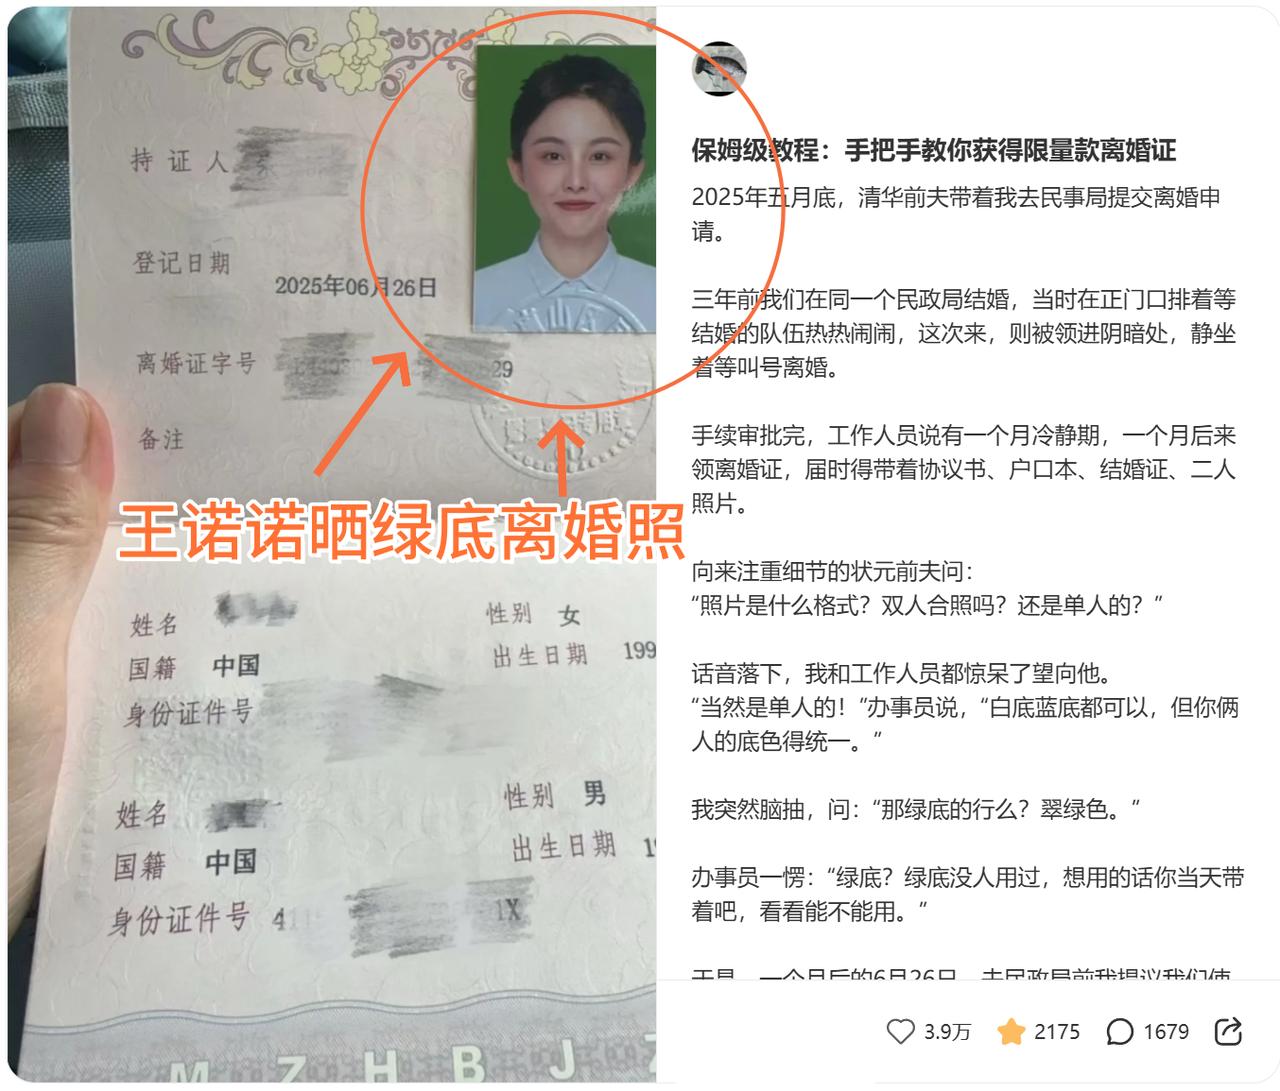 持证人
登记日期
2025年06月26日
离婚证字号
29
备注
王诺诺晒绿底离婚照
姓名
性别 女
国籍 中国
出生日期 199
身份证件号
姓名
性别 男
国籍 中国
出生日期 19
身份证件号 41
1X
M Z H B J Z
保姆级教程：手把手教你获得限量款离婚证
2025年五月底，清华前夫带着我去民事局提交离婚申
请。
三年前我们在同一个民政局结婚，当时在正门口排着等
结婚的队伍热热闹闹，这次来，则被领进阴暗处，静坐
着等叫号离婚。
手续审批完，工作人员说有一个月冷静期，一个月后来
领离婚证，届时得带着协议书、户口本、结婚证、二人
照片。
向来注重细节的状元前夫问：
“照片是什么格式？双人合照吗？还是单人的？”
话音落下，我和工作人员都惊呆了望向他。
“当然是单人的！”办事员说，“白底蓝底都可以，但你俩
人的底色得统一。”
我突然脑抽，问：“那绿底的行么？翠绿色。”
办事员一愣：“绿底？绿底没人用过，想用的话你当天带
着吧，看看能不能用。”
于是，一个月后的6月26日，去民政局前我提议我们使
3.9万 2175 1679